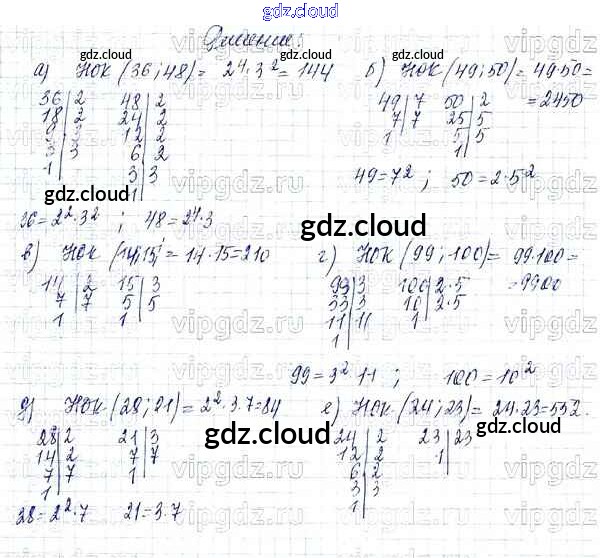 gdz.cloud
gdz.cloud
gdz.cloud
Решение:
а) НОК (36; 48) = 2⁴·3² = 144
б) НОК (49; 50) = 49·50 =
= 2450
36|2 48|2
18|2 24|2
9|3 12|2
3|3 6|2
1 3|3
1
49|7 50|2
7|7 25|5
1 5|5
1
49=7² ; 50=2·5²
36=2²·3² ; 48=2⁴·3
gdz.cloud
gdz.cloud
в) НОК (14;15) = 14·15=210
г) НОК (99; 100) = 99·100=
=9900
14|2 15|3
7|7 5|5
1 1
99|3 100|2·5
33|3 10|2·5
11|11 1
1
gdz.cloud
gdz.cloud
99=3²·11 ; 100=10²
д) НОК (28; 21) = 2²·3·7=84
е) НОК (24; 23) = 24·23=552.
28|2 21|3
14|2 7|7
7|7 1
1
24|2 23|23
12|2 1
6|2
3|3
1
gdz.cloud
gdz.cloud
28=2²·7 21=3·7
gdz.cloud
gdz.cloud
vipgdz.ru